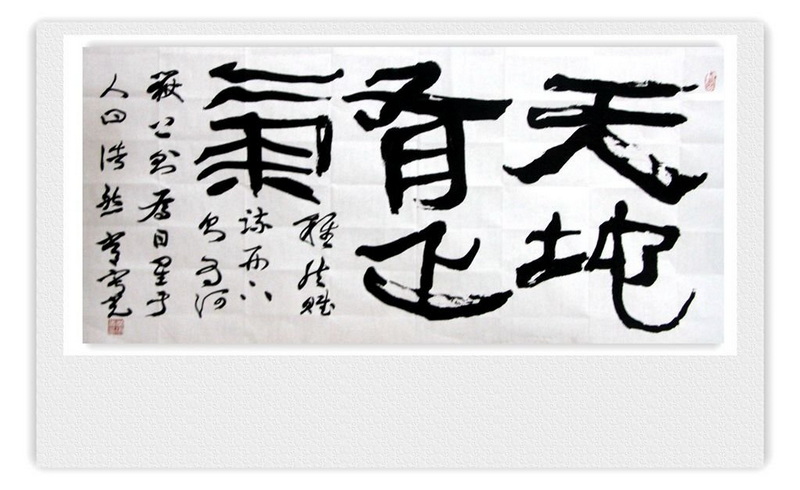 天地
有正
氣
雜然賦
流形下
則為河
嶽上則為日星于
人曰浩然